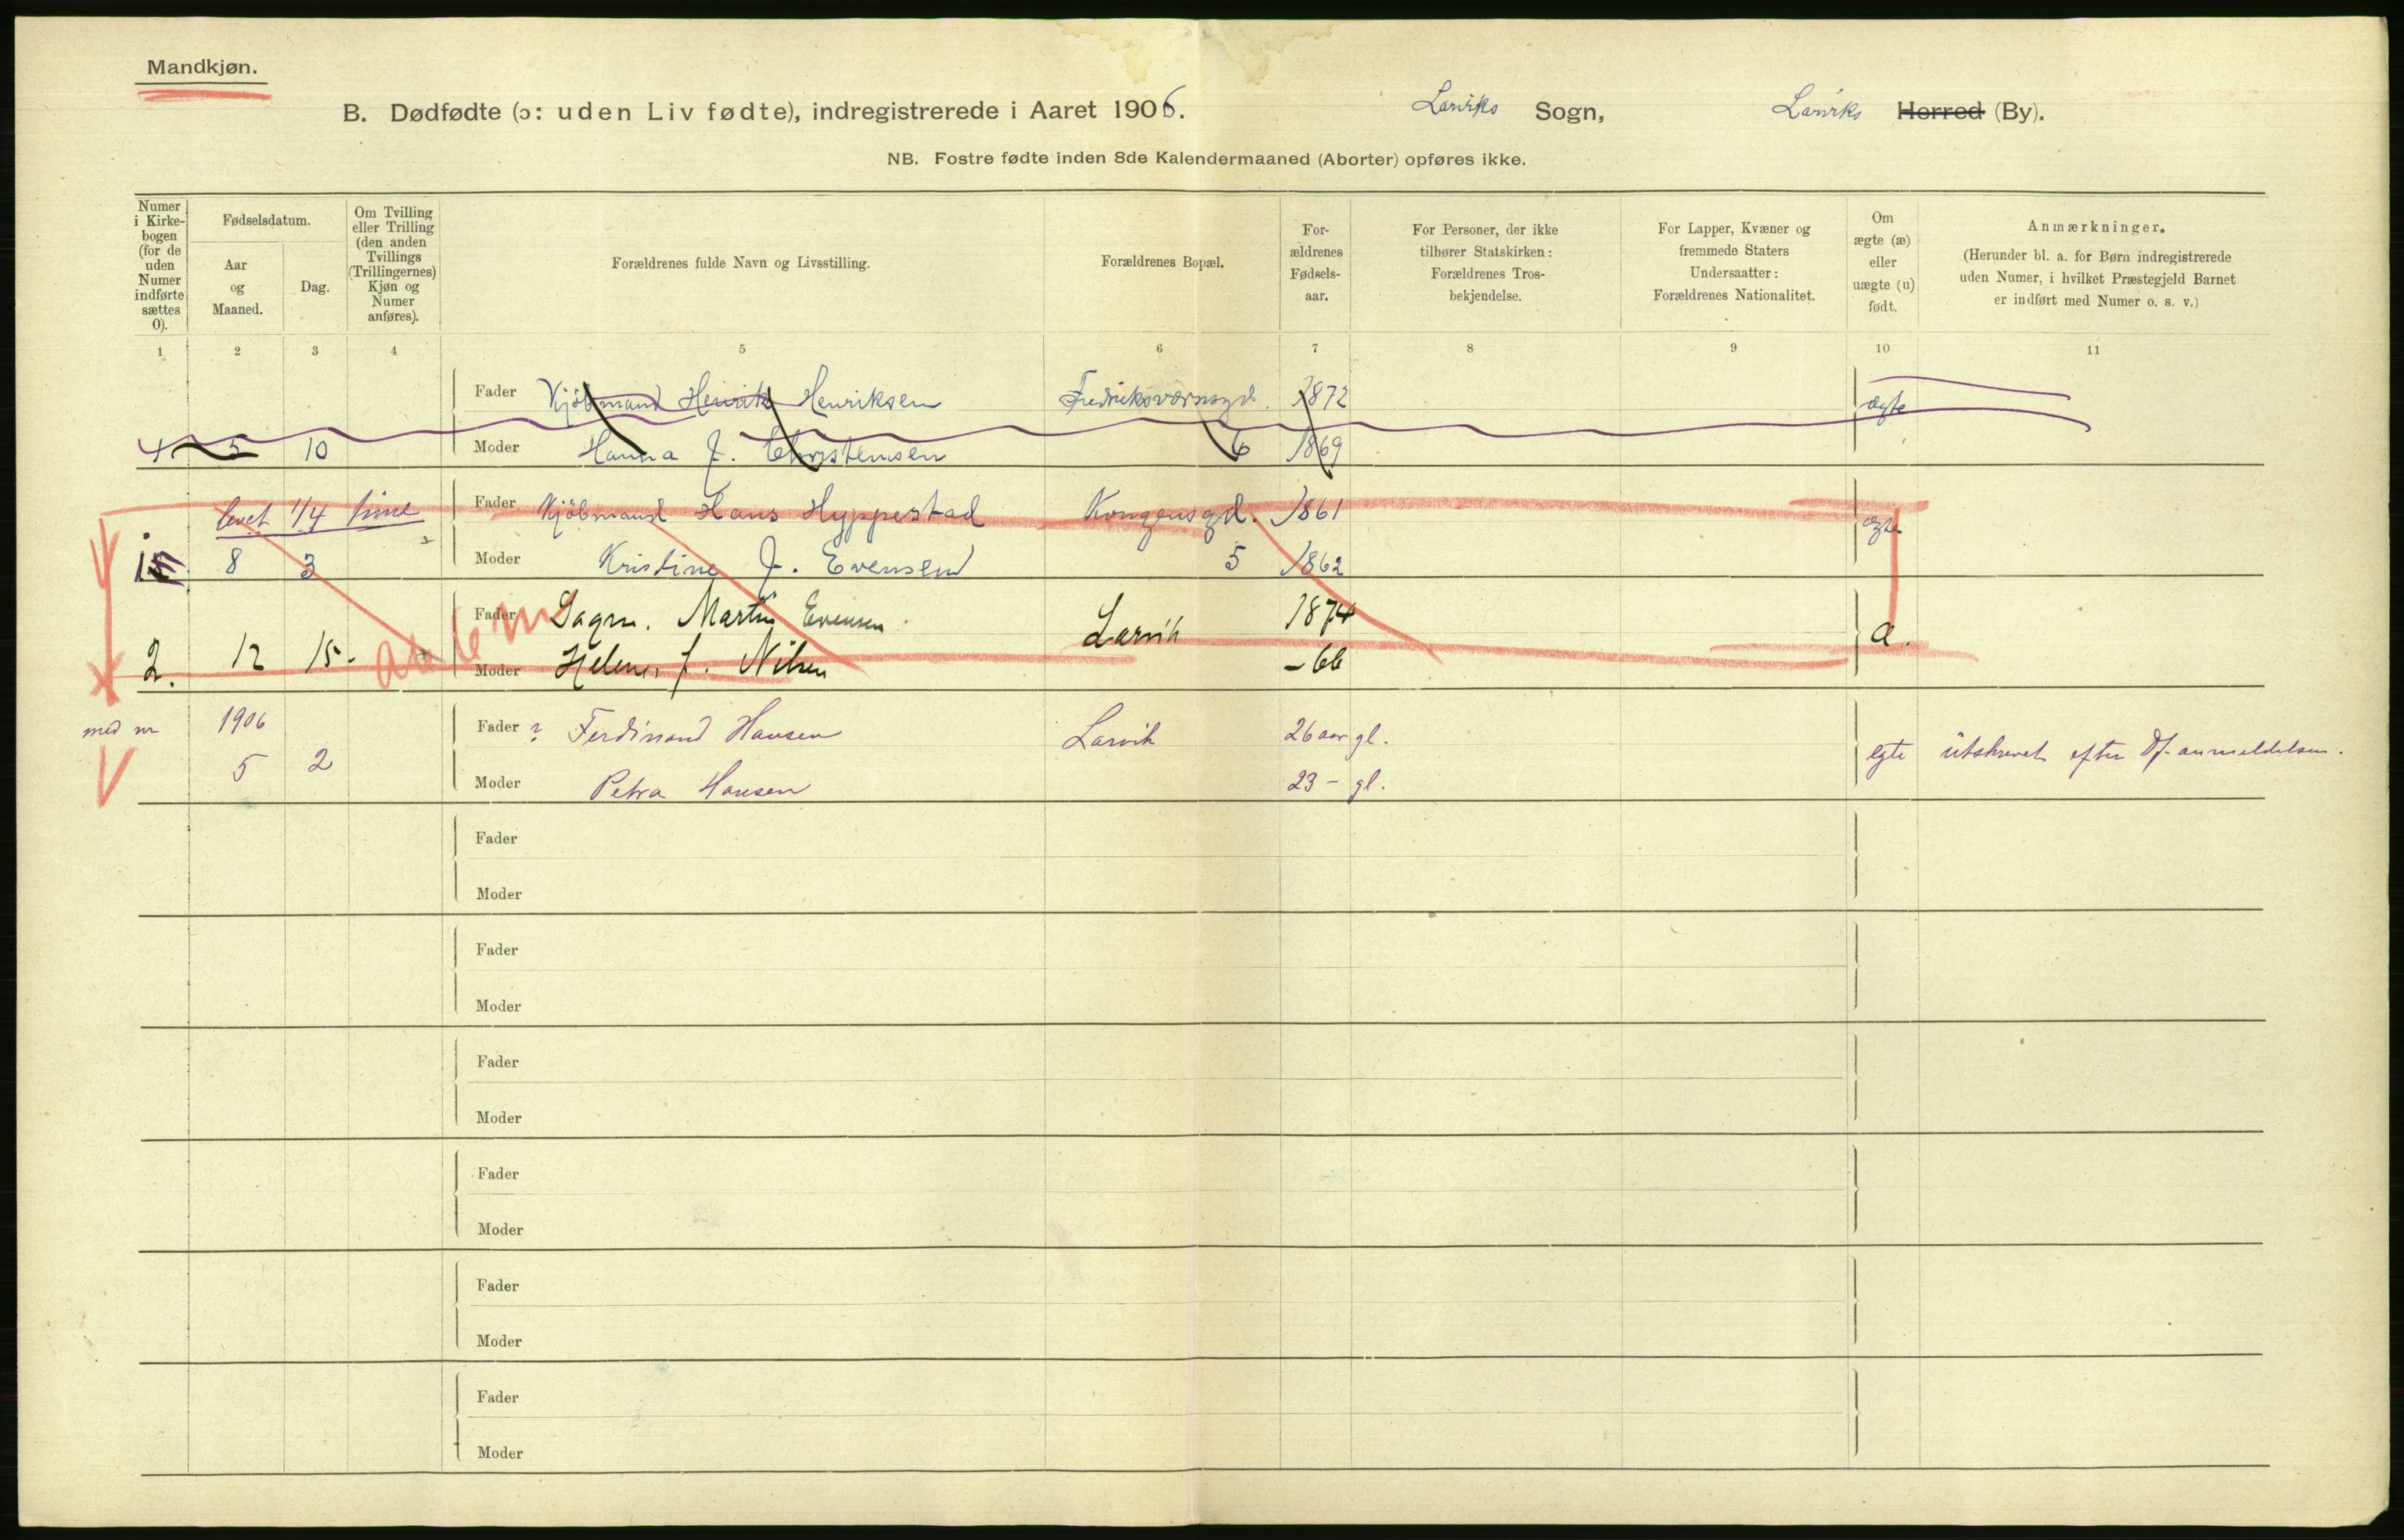 Mandkjøn.
B. Dødfødte (ɔ: uden Liv fødte), indregistrerede i Aaret 1906. Larviks Sogn, Larviks Herred (By).
NB. Fostre fødte inden 8de Kalendermaaned (Aborter) opføres ikke.
Numer i Kirkebogen (for de uden Numer indførte sættes 0).
Fødselsdatum.
Aar og Maaned.
Dag.
Om Tvilling eller Trilling (den anden Tvillings (Trillingernes) Kjøn og Numer anføres).
Forældrenes fulde Navn og Livsstilling.
Forældrenes Bopæl.
Forældrenes Fødselsaar.
For Personer, der ikke tilhører Statskirken: Forældrenes Trosbekjendelse.
For Lapper, Kvæner og fremmede Staters Undersaatter: Forældrenes Nationalitet.
Om ægte (æ) eller uægte (u) født.
Anmærkninger.
(Herunder bl. a. for Børn indregistrerede uden Numer, i hvilket Præstegjeld Barnet er indført med Numer o. s. v.)
1 2 3 4 5 6 7 8 9 10 11
Fader Kjöbmand Henrik Henriksen Fredriksværnsgd. 1872 ægte
5 10 Moder Hanna J. Christensen 6 1869
levet 1/4 time Fader Kjöbmand Hans Hyppestad Kongensgd. 1861 ægte
8 3 Moder Kristine J. Evensen 5 1862
Fader Sagm. Martin Evensen Larvik 1874 æ.
2. 12 15 Moder Helene f. Nilsen - 66
med nr 1906 Fader ? Ferdinand Hansen Larvik 26 aar gl. egte utskrevet efter Df. anmeldelsen.
5 2 Moder Petra Hansen 23 - gl.
Fader
Moder
Fader
Moder
Fader
Moder
Fader
Moder
Fader
Moder
Fader
Moder